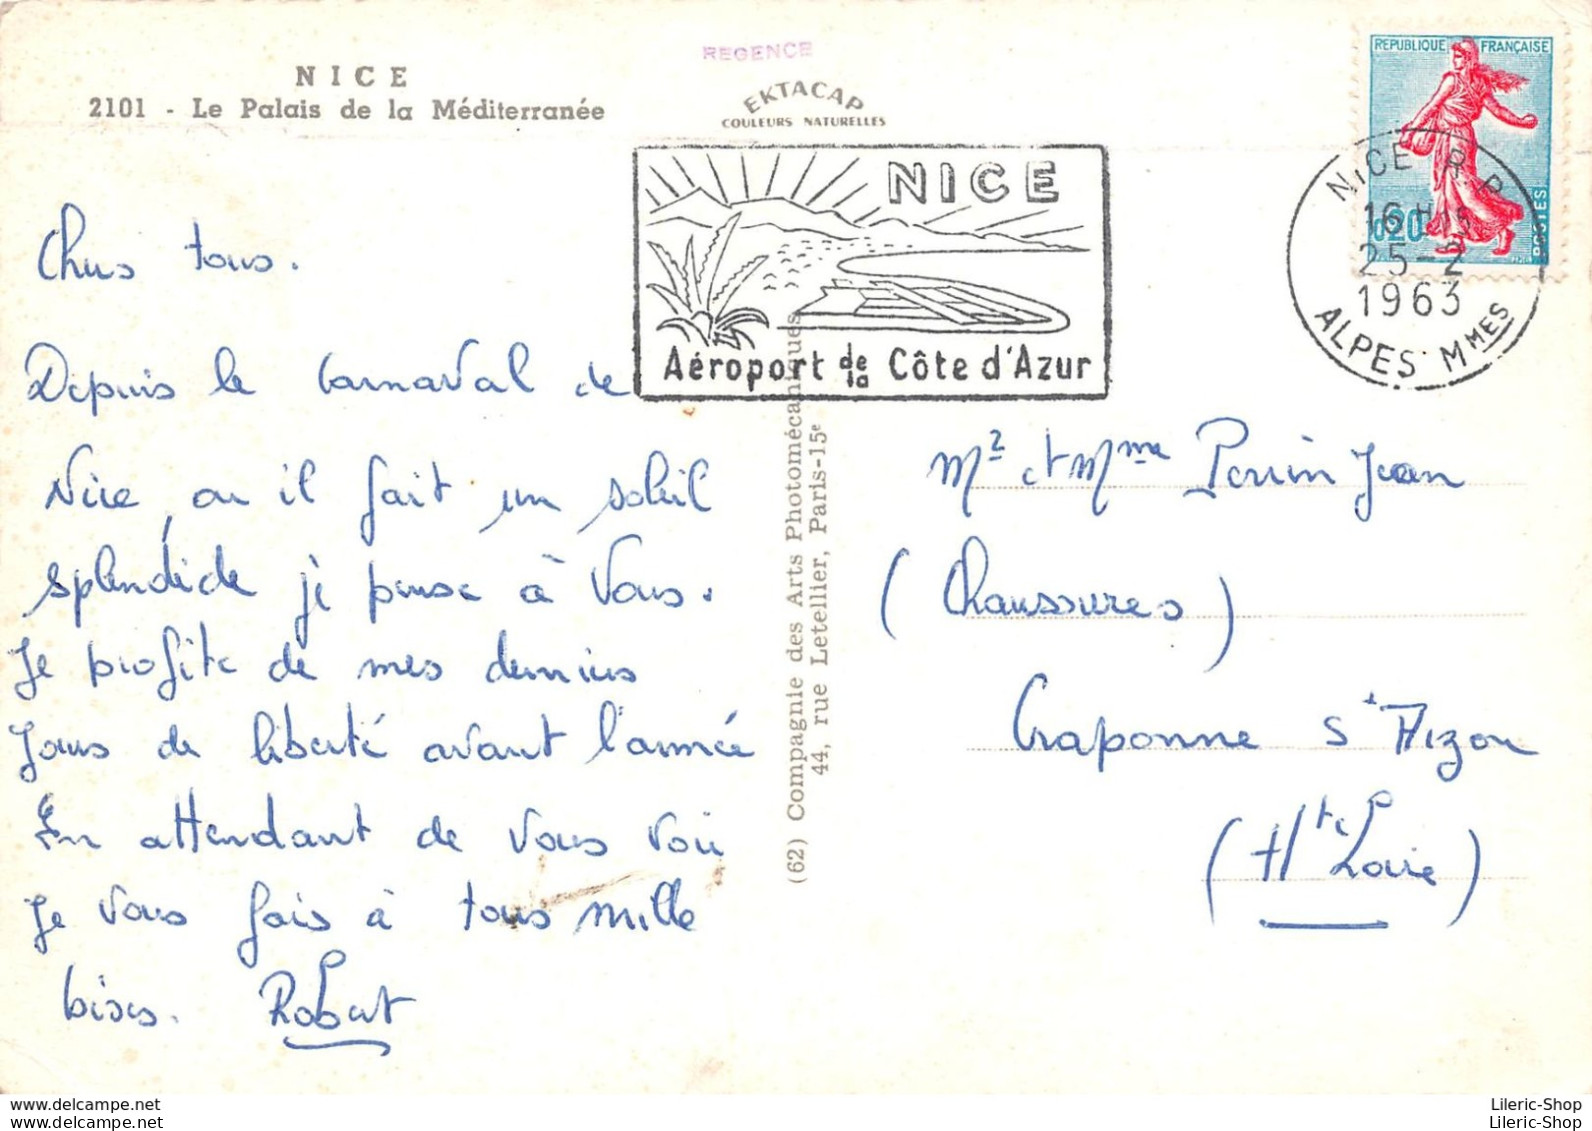 NICE
2101 - Le Palais de la Méditerranée
REGENCE
EKTACAP
COULEURS NATURELLES
REPUBLIQUE FRANÇAISE
0,20
POSTES
NICE R.P.
16 H 15
25-2
1963
ALPES MMES
NICE
Aéroport de la Côte d'Azur
Chers tous.
Depuis le Carnaval de
Nice, ou il fait un soleil
splendide je pense à vous.
Je profite de mes derniers
Jours de liberté avant l'armée
En attendant de vous voir
Je vous fais à tous mille
bises. Robert
(62) Compagnie des Arts Photomécaniques
44, rue Letellier, Paris-15e
Mr et Mme Perrin Jean
(Chaussures)
Craponne s/ Arzon
(Hte Loire)
delcampe.net
delcampe.net
Lileric-Shop
Lileric-Shop